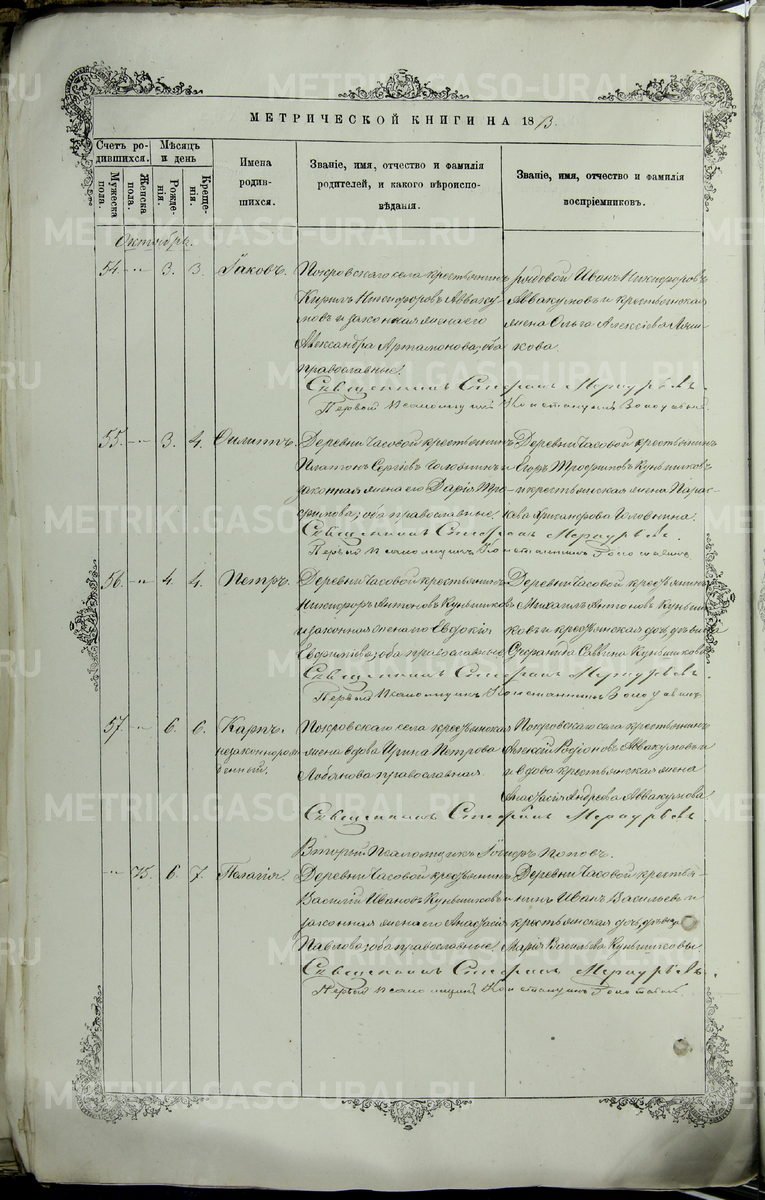 МЕТРИЧЕСКОЙ КНИГИ НА 18
Счетъ ро-
дившихся.
Мѣсяцъ
и день
Мужеска
пола.
Женска
пола.
Рожде-
нія.
Креще-
нія.
Имена
родив-
шихся.
Званіе, имя, отчество и фамилія
родителей, и какого вѣроиспо-
вѣданія.
Званіе, имя, отчество и фамилія
воспріемниковъ.
Октябрь.
54. 3. 3. Іаковъ.
Покровскаго села крестьянинъ
Кирилъ Никифоровъ Авваку-
мовъ и законная жена его
Александра Артамонова, оба
православные.
рядовой Иванъ Никифоровъ
Аввакумовъ и крестьянская
жена Ольга Алексіева
кова.
Священникъ Стефанъ Меркурьевъ.
Первый Псаломщикъ Константинъ
55. 3. 4.
Деревни Часовой крестьянинъ
Платонъ Сергіевъ Головнинъ и
законная жена его Дарія Тро-
фимова, оба православные.
Деревни Часовой крестьянинъ
Егоръ Трофимовъ Куньщиковъ
и крестьянская жена Парас-
кева Головнина.
Священникъ Стефанъ Меркурьевъ.
Первый Псаломщикъ Константинъ
56. 4. 4. Петръ.
Деревни Часовой крестьянинъ
Никифоръ Антоновъ Куньщиковъ
и законная жена его Евдокія
Евфиміева, оба православные.
Деревни Часовой крестьянинъ
Михаилъ Антоновъ Куньщи-
ковъ и крестьянская дочь дѣвица
Саввина Куньщикова
Священникъ Стефанъ Меркурьевъ.
Первый Псаломщикъ Константинъ
57. 6. 6. Карпъ.
незаконнорож-
денный.
Покровскаго села крестьянская
жена вдова Ирина Петрова
Лобанова православная
Покровскаго села крестьянинъ
Алексій Родіоновъ Аввакумовъ и
вдова крестьянская жена
Анастасія Андреева Аввакумова
Священникъ Стефанъ Меркурьевъ
Вторый Псаломщикъ Поповъ.
75. 6. 7. Пелагія.
Деревни Часовой крестьянинъ
Василій Ивановъ Куньщиковъ и
законная жена его Анастасія
Павлова, оба православные.
Деревни Часовой крестья-
нинъ Иванъ Васильевъ и
крестьянская дочь дѣвица
Марія Васильева Куньщиковы
Священникъ Стефанъ Меркурьевъ.
Первый Псаломщикъ Константинъ
METRIKI.GASO-URAL.RU